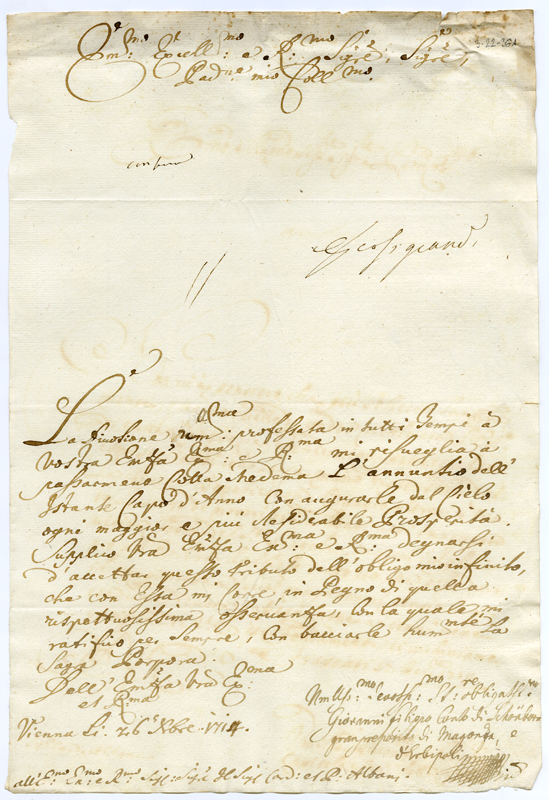 Em:mo Eccell:mo e R:mo Sig:re, Sig:re,
Pad:ne mio Coll:mo
La divotione um:ma professata in tutti Tempi à
Vostra Emza Ema: e R:ma mi risueglia à
passarmeno colla medema L'annuntio dell'
Istante Capo d'Anno con augurarle dal Cielo
ogni maggior e più desiderabile Prosperità.
Supplico Vra Emza Em:ma e R:ma degnarsi
d'accettar questo tributo dell'obligo mio infinito,
che con Essa mi corre, in Pegno di quella
rispettuosissima osservanza, con la quale mi
ratifico per sempre, con bacciarle hum:nte La
Sagra Porpora.
Dell'Emza Vra E:ma
et R:ma
Vienna Li 26 Nbre 1714.
Giovanni Conte di Schönborn
gran preposito di Magonza e
d'Erbipoli
all'E:mo Em:mo e R:mo Sig: Sig: Card: Albani.